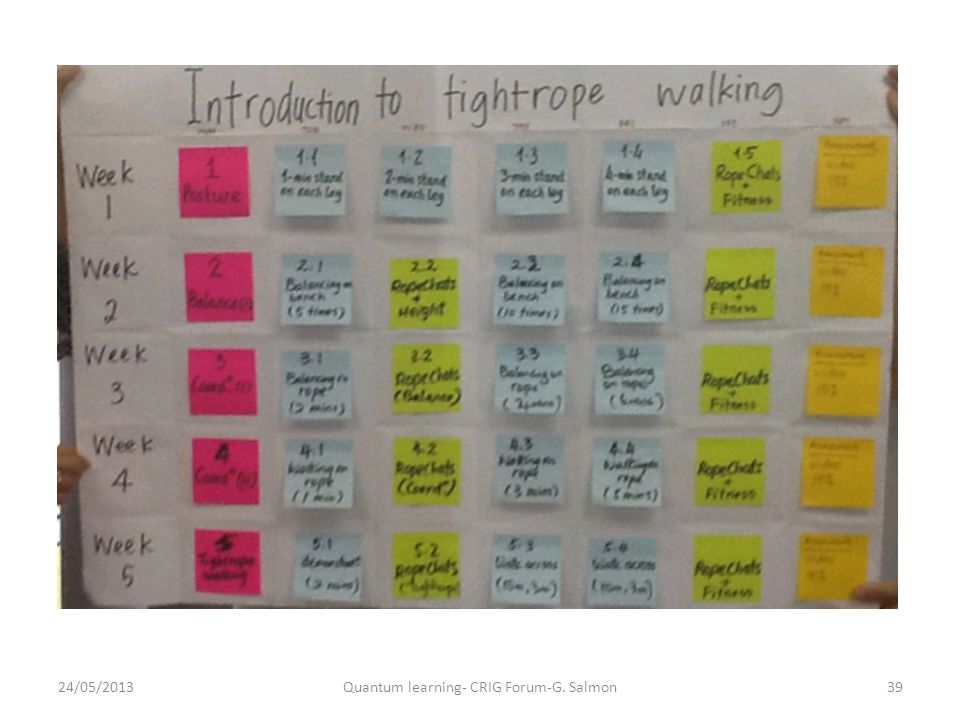 Introduction to tightrope walking
Week 1
1 Posture
1.1 1-min stand on each leg
1.2 2-min stand on each leg
1.3 3-min stand on each leg
1.4 4-min stand on each leg
1.5 RopeChats + Fitness
video
15%
Week 2
2
2.1 Balancing on bench (5 times)
2.2 RopeChats + Height
2.3 Balancing on bench (10 times)
2.4 Balancing on bench (15 times)
RopeChats + Fitness
video
15%
Week 3
3
3.1 Balancing on rope (2 mins)
3.2 RopeChats (Balance)
3.3 Balancing on rope
3.4 Balancing on rope
RopeChats + Fitness
video
15%
Week 4
4
4.1 Walking on rope (1 min)
4.2 RopeChats (Coordⁿ)
4.3 Walking on rope (3 mins)
4.4 Walking on rope (5 mins)
RopeChats + Fitness
video
Week 5
5 Tightrope walking
5.1 (2 mins)
5.2 RopeChats (Tightrope)
5.3 Walk across
5.4 Walk across
RopeChats + Fitness
video
24/05/2013
Quantum learning- CRIG Forum-G. Salmon
39